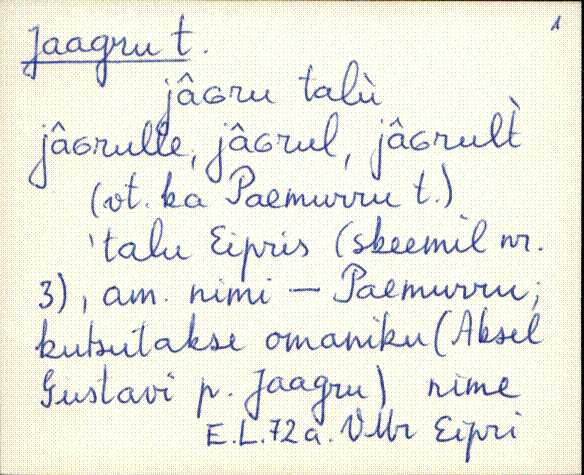 1
Jaagru t.
jâGru talù
jâGrulle, jâGrul, jâGrult̀
(vt. ka Paemurru t.)
'talu Eipris (skeemil nr.
3), am. nimi — Paemurru;
kutsutakse omaniku (Aksel
Gustavi p. Jaagru) nime
E.L. 72 a. VMr Eipri